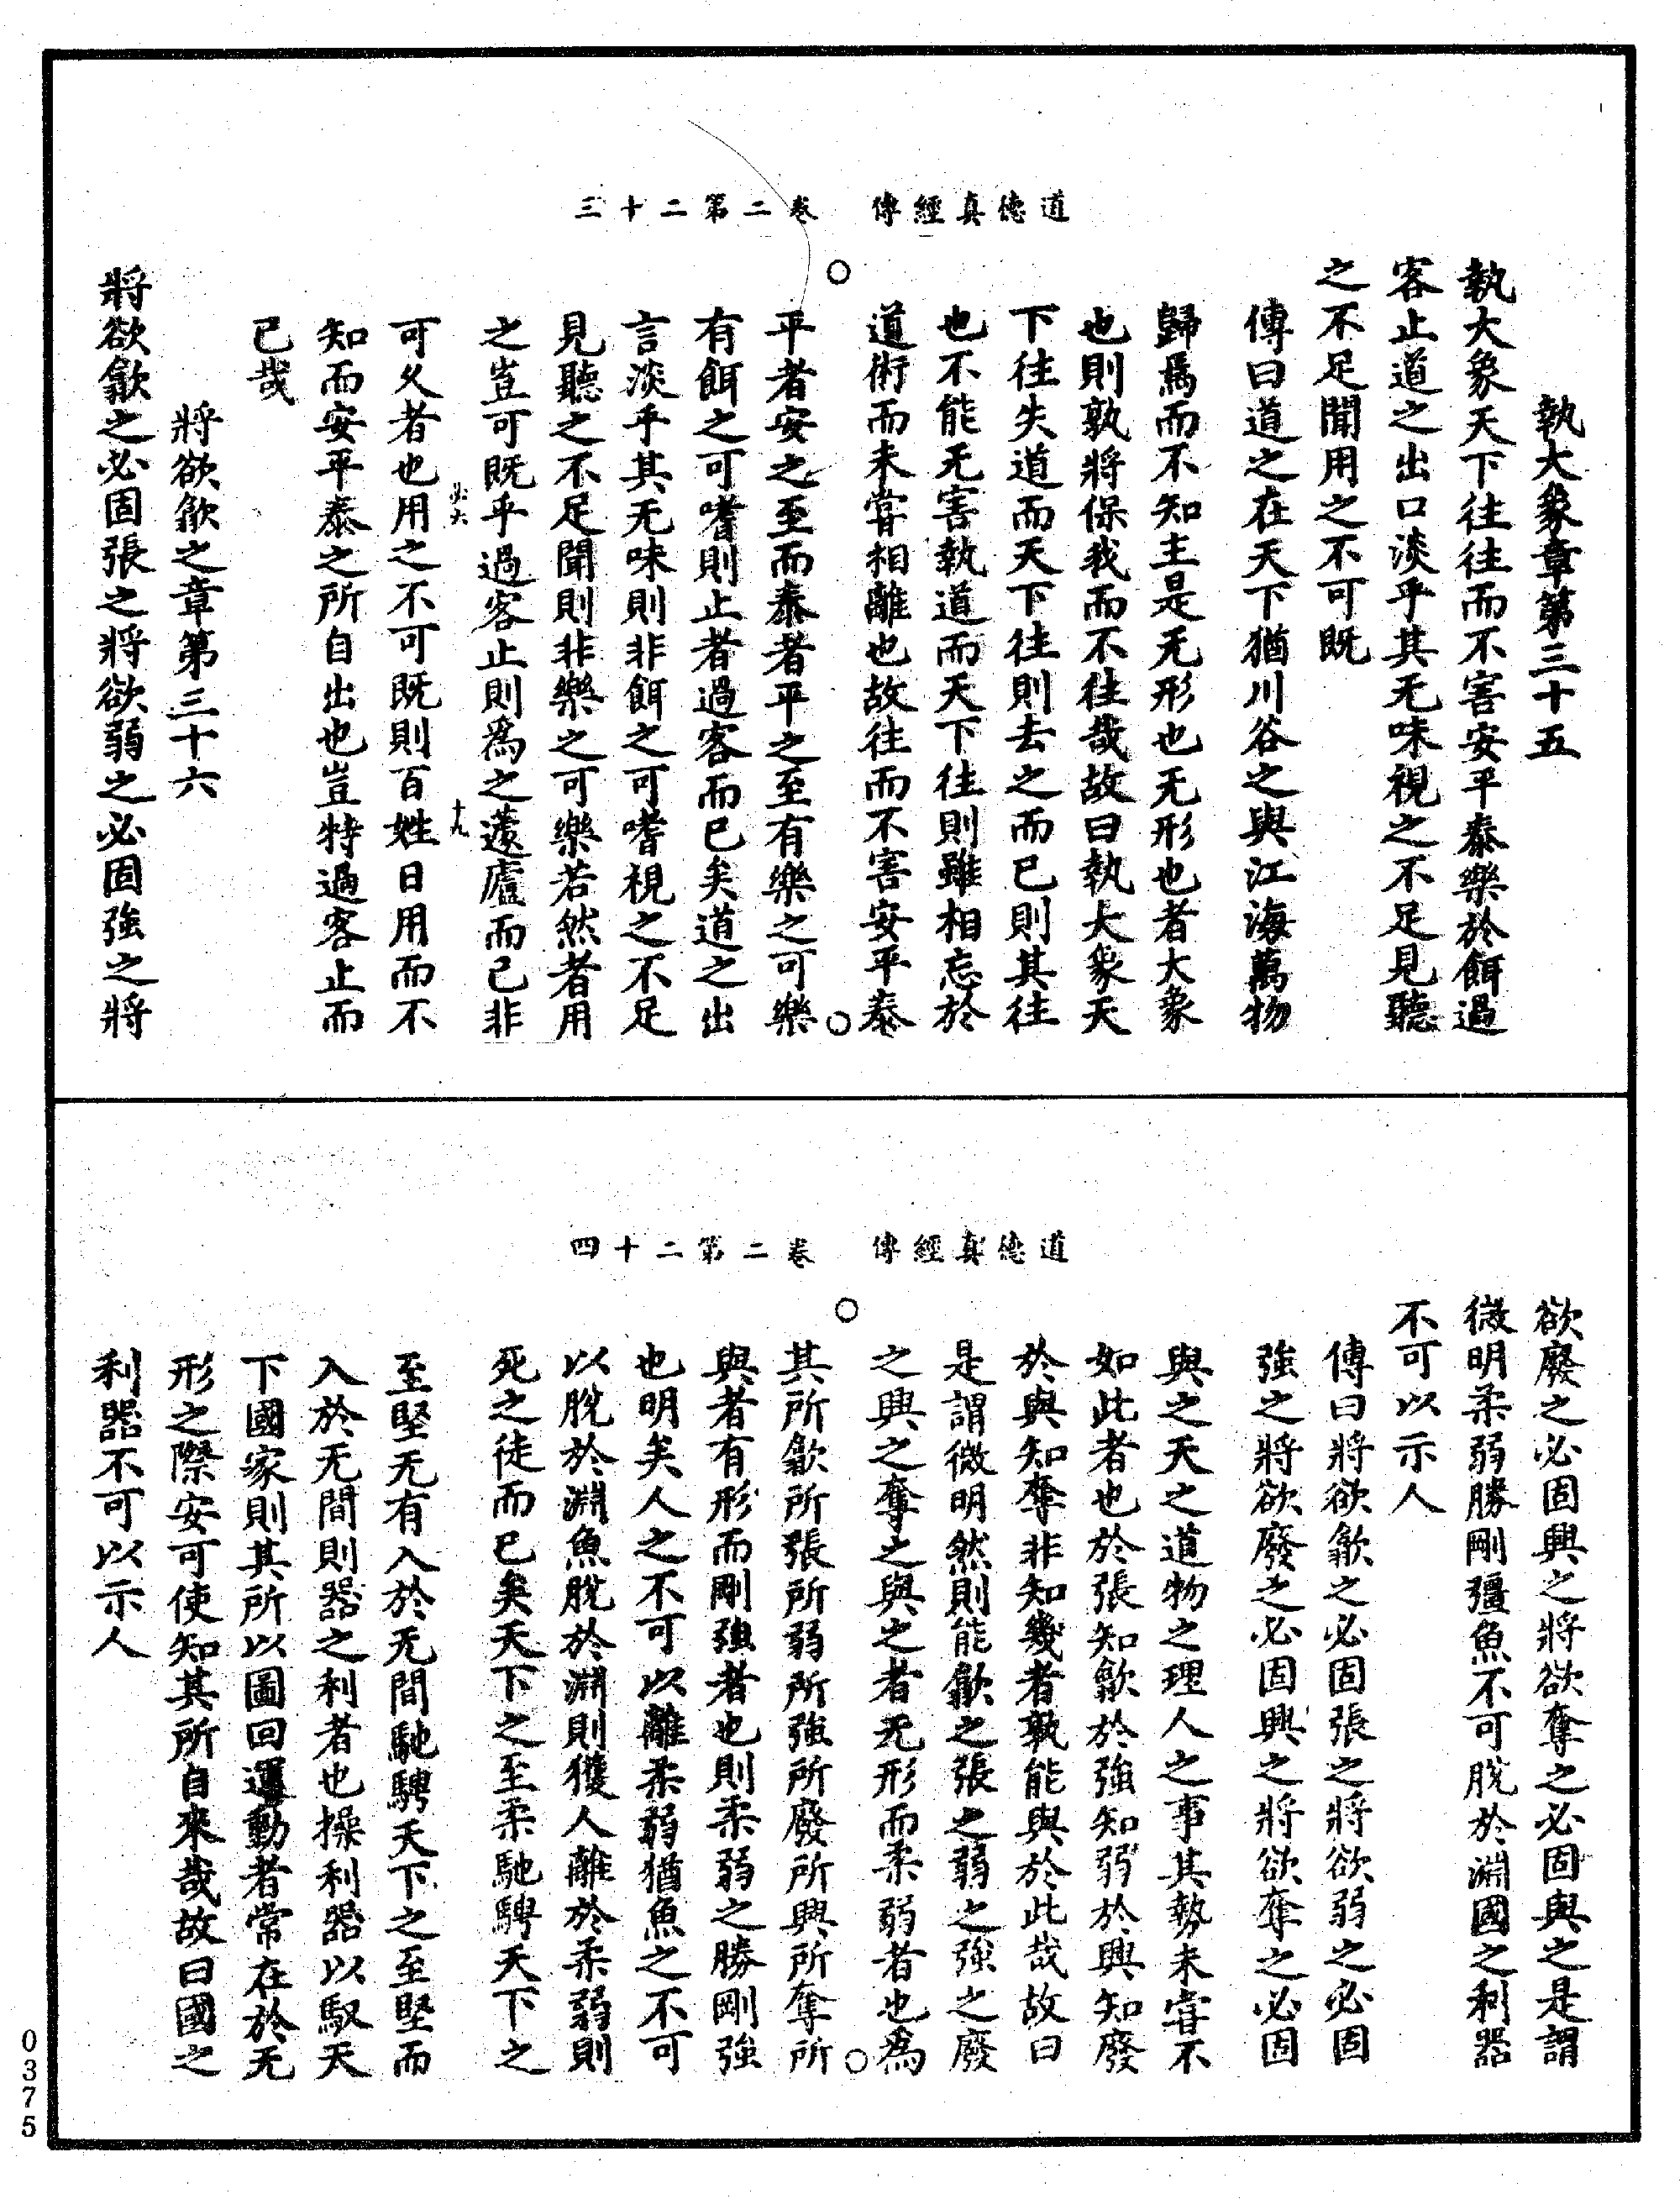 道德真經傳　卷二第二十三
執大象章第三十五
執大象天下往往而不害安平泰樂於餌過
客止道之出口淡乎其无味視之不足見聽
之不足聞用之不可既
傳曰道之在天下猶川谷之與江海萬物
歸焉而不知主是无形也无形也者大象
也則孰將保我而不往哉故曰執大象天
下往失道而天下往則去之而已則其往
也不能无害執道而天下往則雖相忘於
道術而未嘗相離也故往而不害安平泰
平者安之至而泰者平之至有樂之可樂
有餌之可嗜則止者過客而已矣道之出
言淡乎其无味則非餌之可嗜視之不足
見聽之不足聞則非樂之可樂若然者用
之豈可既乎過客止則為之蘧廬而已非
必六　十九
可久者也用之不可既則百姓日用而不
知而安平泰之所自出也豈特過客止而
已哉
將欲歙之章第三十六
將欲歙之必固張之將欲弱之必固強之將
道德真經傳　卷二第二十四
欲廢之必固興之將欲奪之必固與之是謂
微明柔弱勝剛彊魚不可脫於淵國之利器
不可以示人
傳曰將欲歙之必固張之將欲弱之必固
強之將欲廢之必固興之將欲奪之必固
與之天之道物之理人之事其勢未嘗不
如此者也於張知歙於強知弱於興知廢
於與知奪非知幾者孰能與於此哉故曰
是謂微明然則能歙之張之弱之強之廢
之興之奪之與之者无形而柔弱者也為
其所歙所張所弱所強所廢所興所奪所
與者有形而剛強者也則柔弱之勝剛強
也明矣人之不可以離柔弱猶魚之不可
以脫於淵魚脫於淵則獲人離於柔弱則
死之徒而已矣天下之至柔馳騁天下之
至堅无有入於无間馳騁天下之至堅而
入於无間則器之利者也操利器以馭天
下國家則其所以圖回運動者常在於无
形之際安可使知其所自來哉故曰國之
利器不可以示人
0375